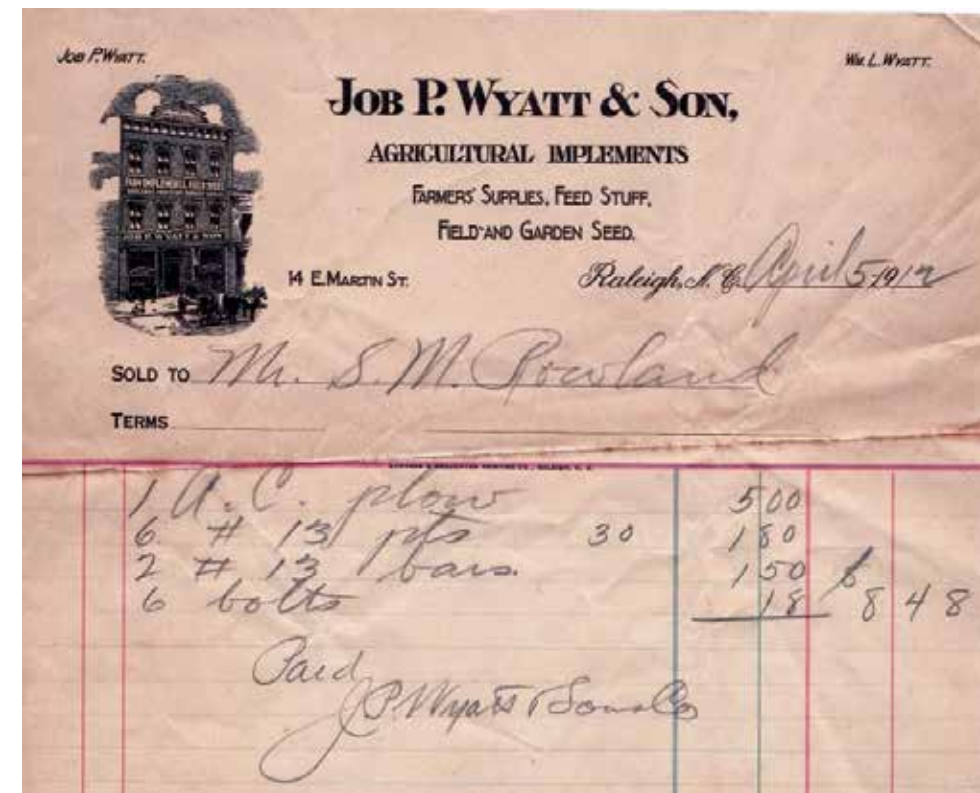 JOB P. WYATT.
WM. L. WYATT.
JOB P. WYATT & SON,
AGRICULTURAL IMPLEMENTS
FARMERS' SUPPLIES, FEED STUFF,
FIELD AND GARDEN SEED.
JOB P. WYATT & SON
14 E. MARTIN ST.
Raleigh, N. C. April 5 1912
SOLD TO Mr. S. M. Rowland
TERMS
1 A. C. plow 5 00
6 # 13 pts 30 1 80
2 # 13 bars. 1 50
6 bolts 18 8 48
Paid
J. P. Wyatt & Sons Co